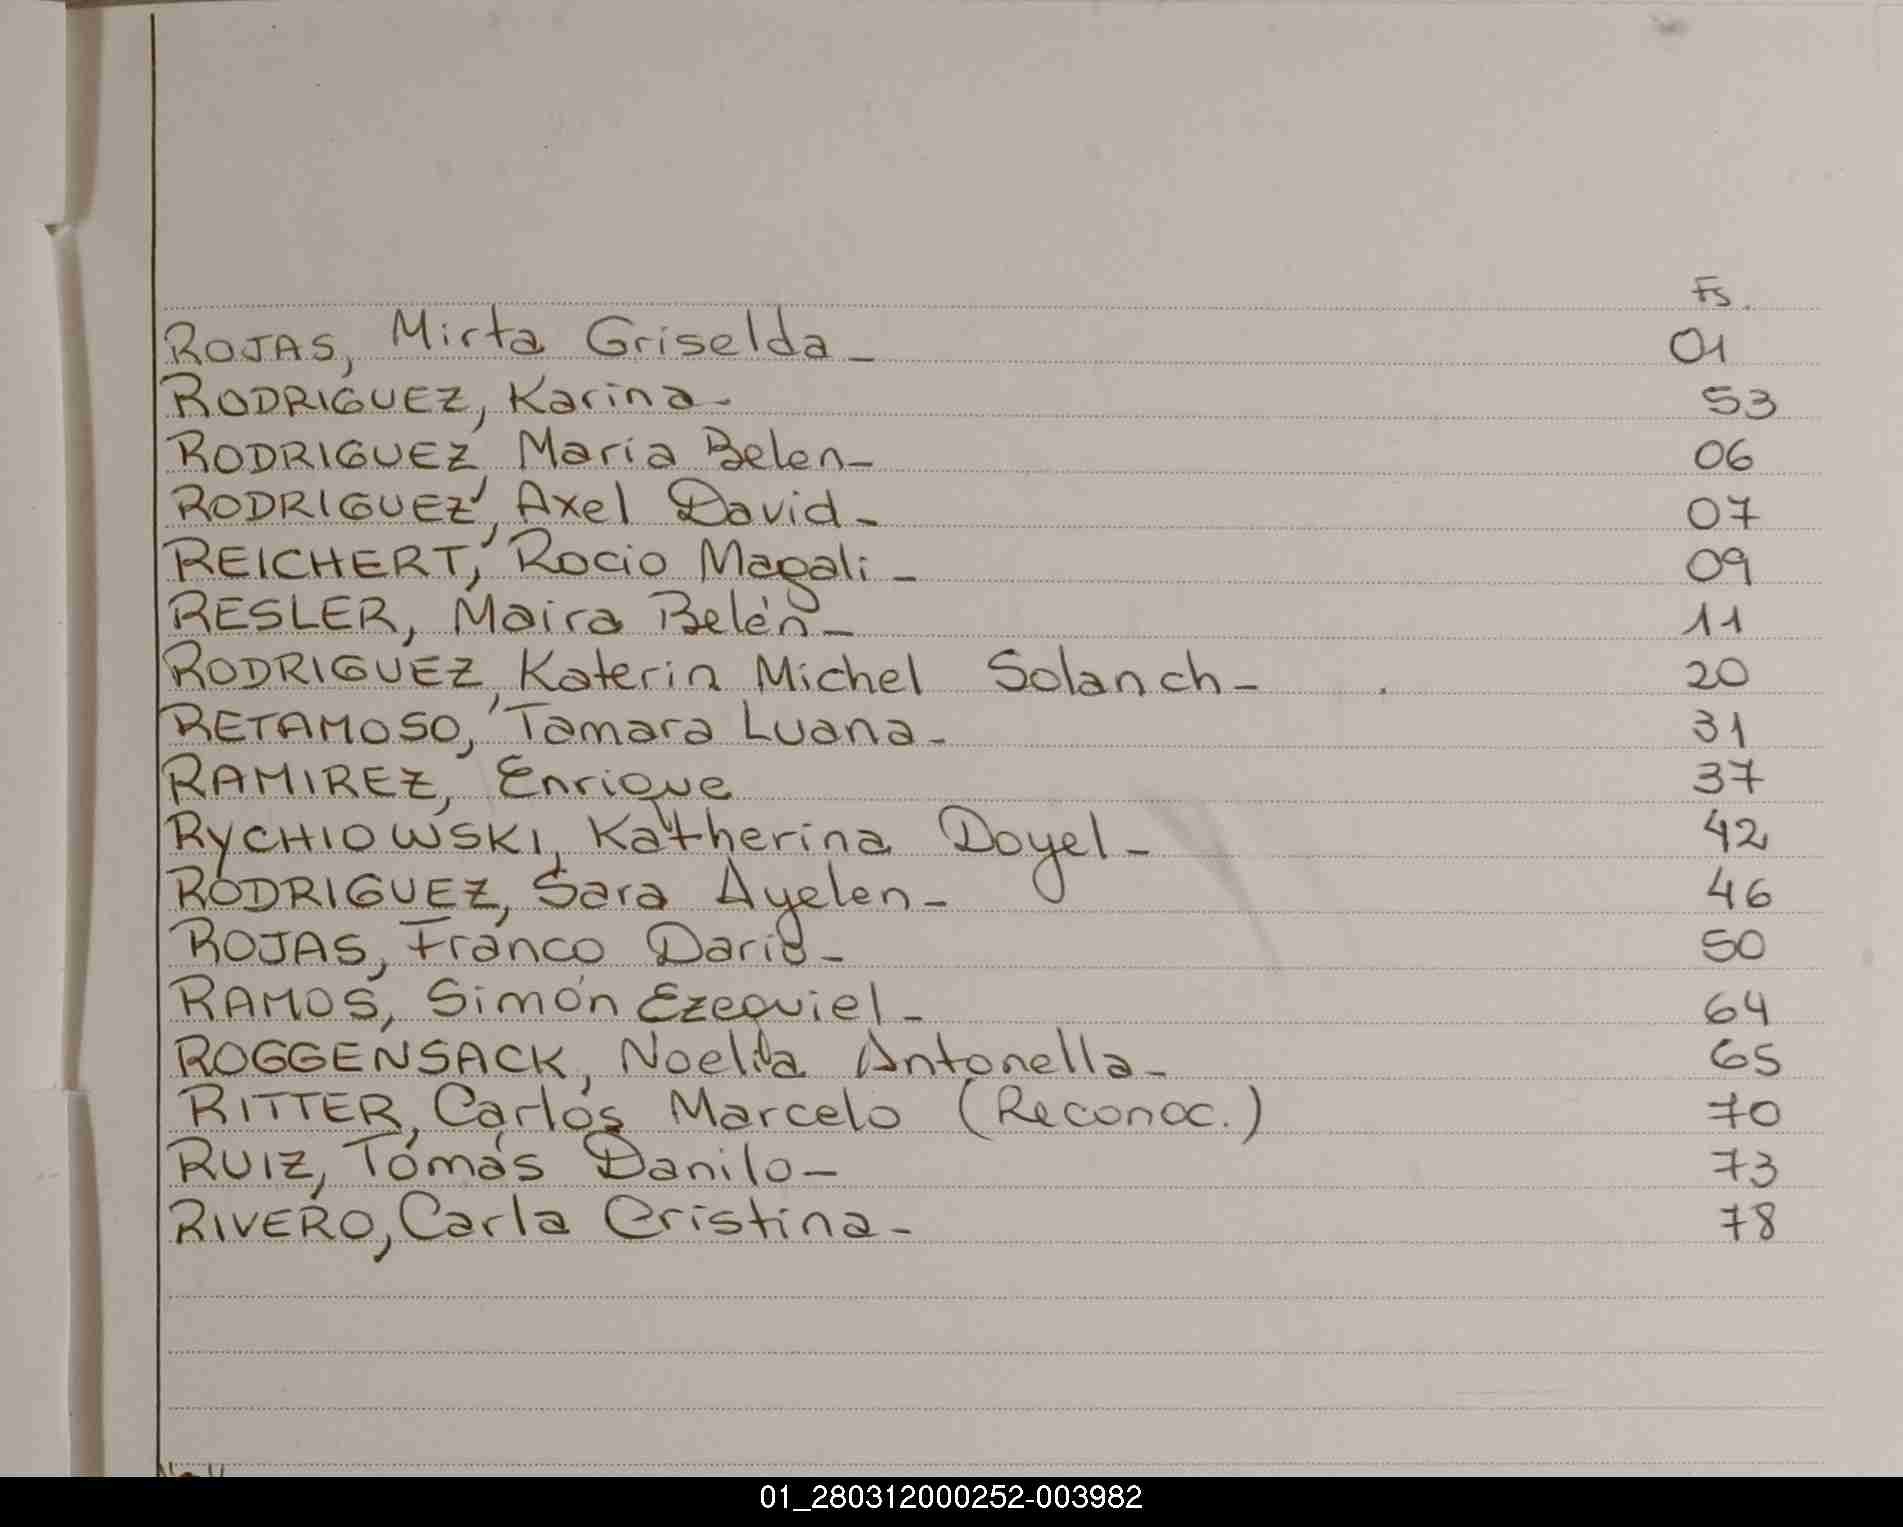 Fs.
ROJAS, Mirta Griselda - 01
RODRIGUEZ, Karina - 53
RODRIGUEZ, Maria Belen - 06
RODRIGUEZ, Axel David - 07
REICHERT, Rocio Magali - 09
RESLER, Maira Belén - 11
RODRIGUEZ, Katerin Michel Solanch - 20
RETAMOSO, Tamara Luana - 31
RAMIREZ, Enrique 37
RYCHIOWSKI, Katherina Doyel - 42
RODRIGUEZ, Sara Ayelen - 46
ROJAS, Franco Dario - 50
RAMOS, Simón Ezequiel - 64
ROGGENSACK, Noelia Antonella - 65
RITTER, Carlos Marcelo (Reconoc.) 70
RUIZ, Tomás Danilo - 73
RIVERO, Carla Cristina - 78
01_280312000252-003982